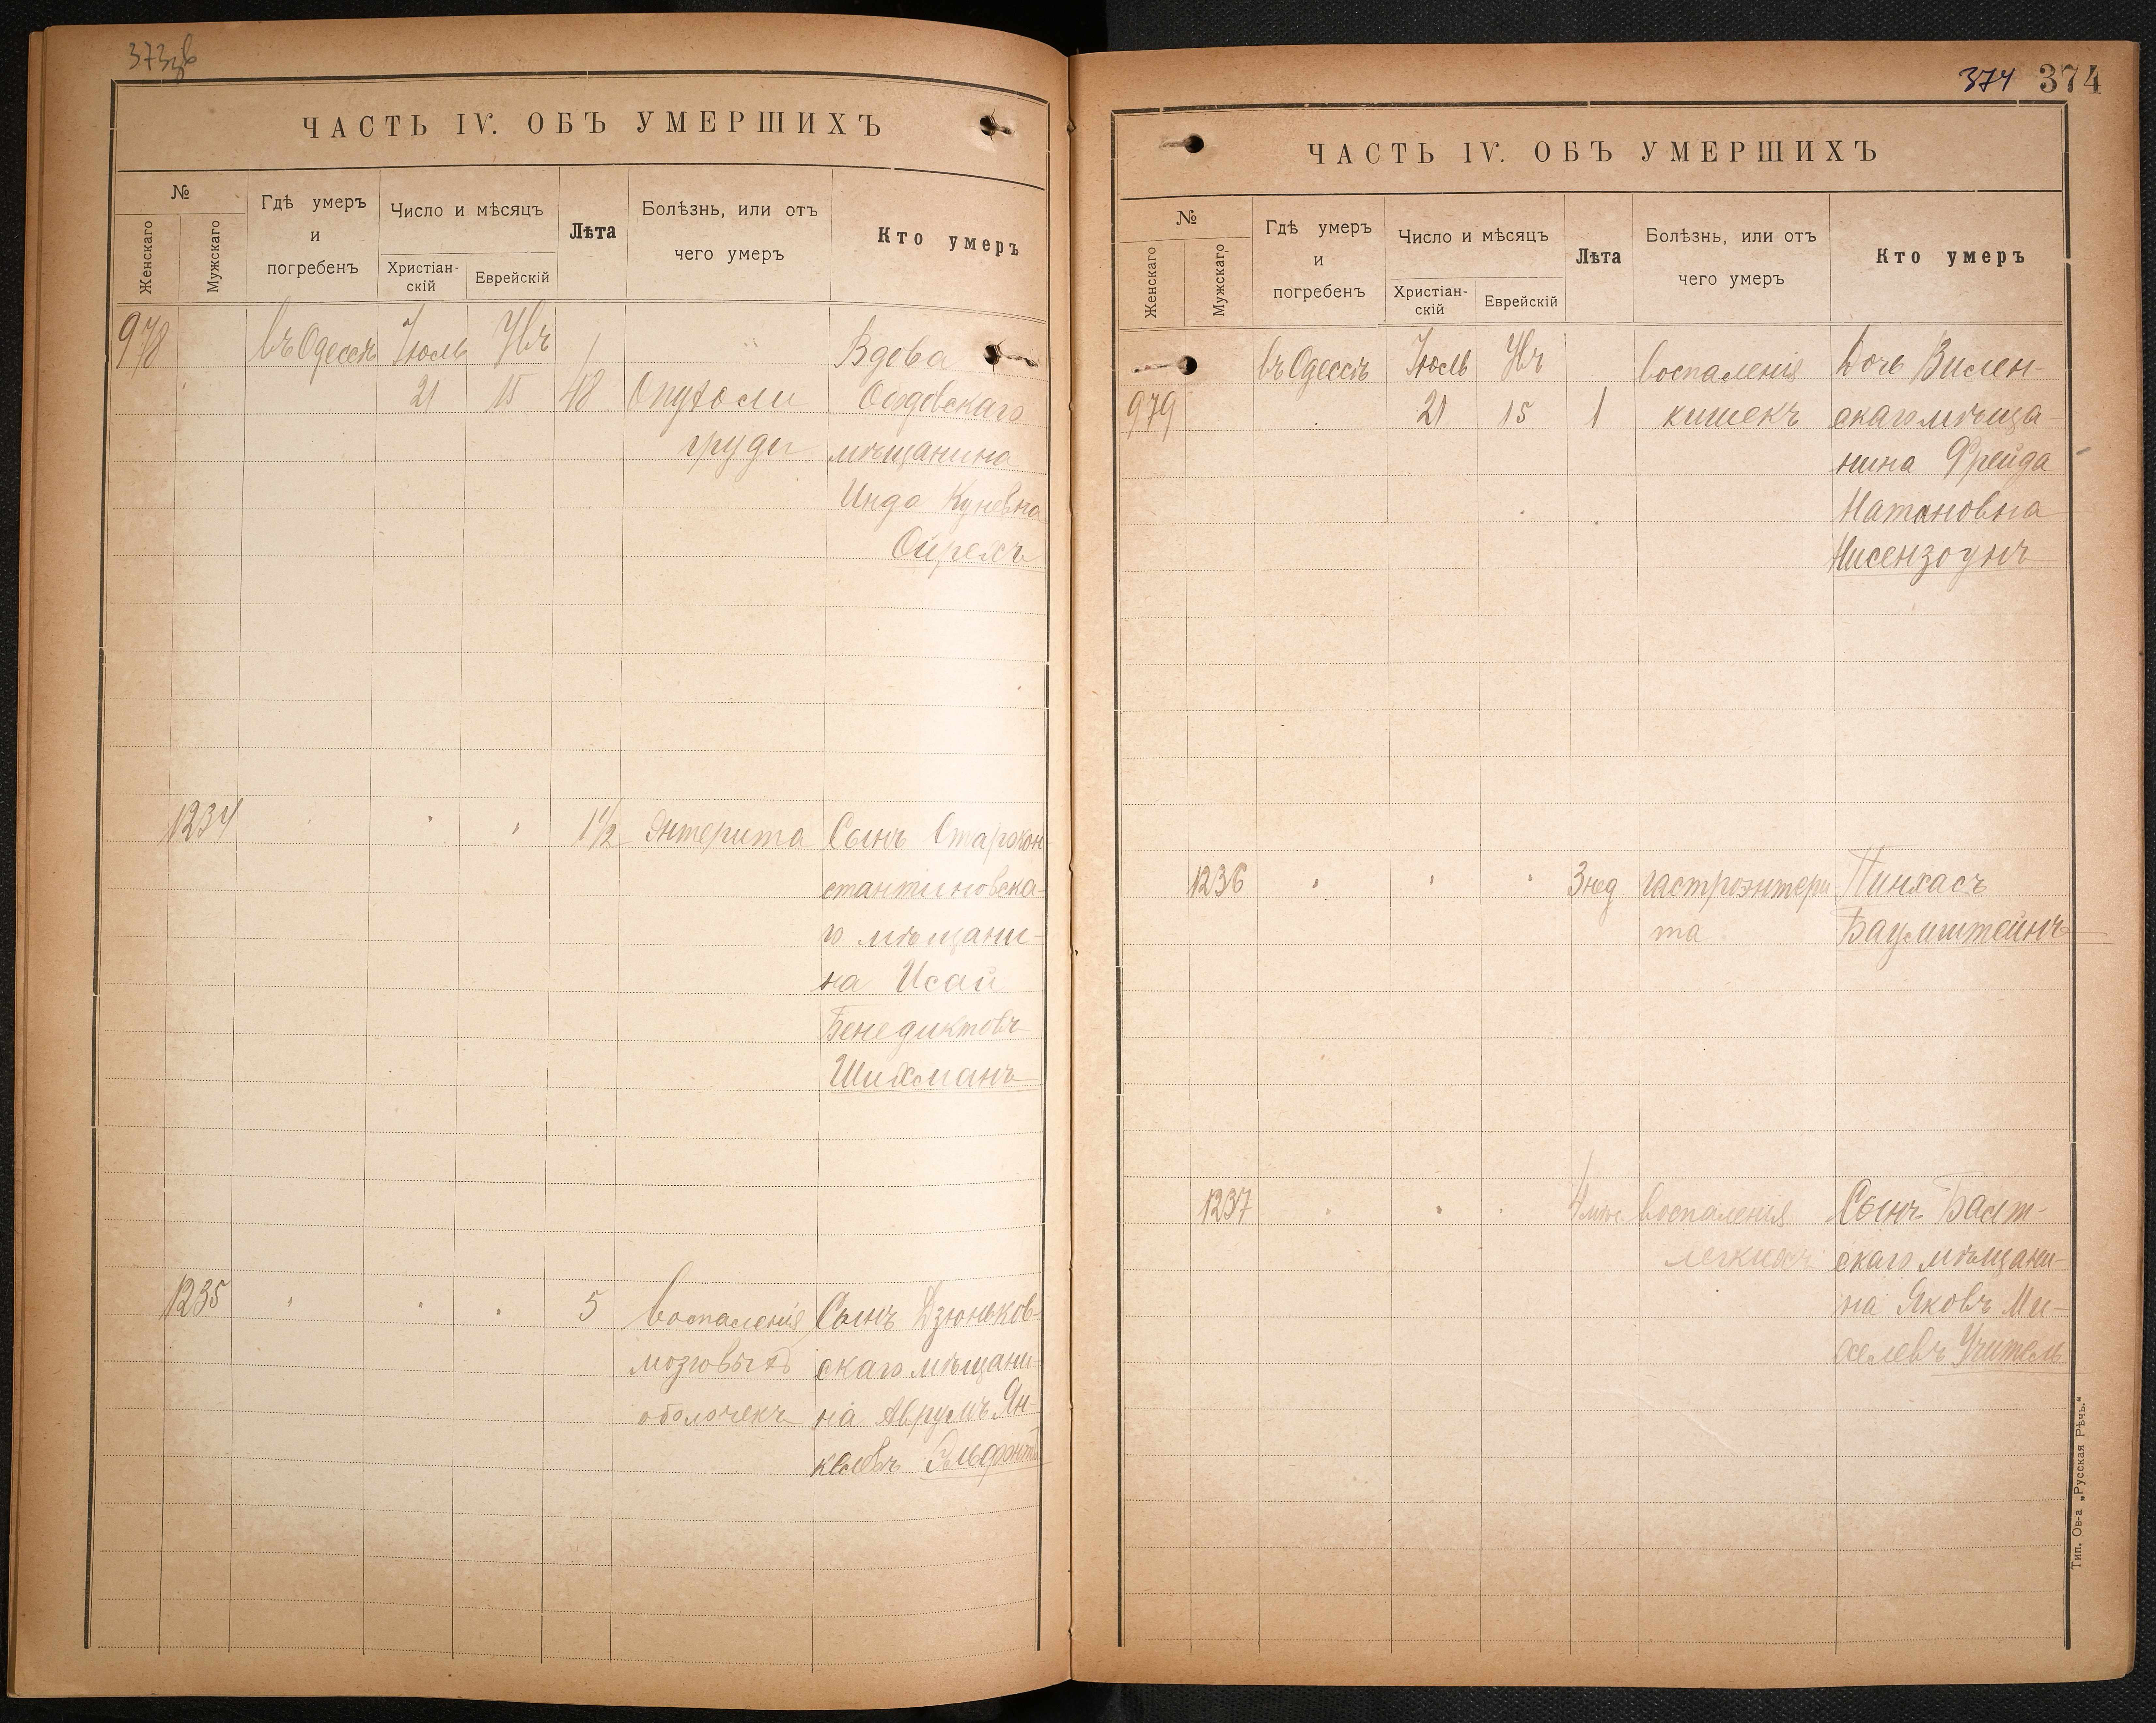 373зв
ЧАСТЬ IV. ОБЪ УМЕРШИХЪ
№
Женскаго
Мужскаго
Гдѣ умеръ
и
погребенъ
Число и мѣсяцъ
Христіан-
скій
Еврейскій
Лѣта
Болѣзнь, или отъ
чего умеръ
Кто умеръ
978
въ Одессѣ
Іюль
21
15
48
Опухоли
груди
Вдова
мѣщанина
Инда Куневна
1234
1½
Энтерита
Сынъ Старокон-
стантиновска-
го мѣщани-
на Исай
Бенедиктовъ
Шихманъ
1235
5
Воспаленія
мозговыхъ
оболочекъ
Сынъ Дзюньков-
скаго мѣщани-
на Аврумъ Ян-
келевъ Эльфантъ
374 374
ЧАСТЬ IV. ОБЪ УМЕРШИХЪ
№
Женскаго
Мужскаго
Гдѣ умеръ
и
погребенъ
Число и мѣсяцъ
Христіан-
скій
Еврейскій
Лѣта
Болѣзнь, или отъ
чего умеръ
Кто умеръ
979
въ Одессѣ
Іюль
21
15
1
Воспаленія
кишекъ
Дочь Вилен-
скаго мѣща-
нина Фрейда
Натановна
Нисензоунъ
1236
3 нед
гастроэнтери
та
Пинхасъ
Баумштейнъ
1237
4 мѣс.
Воспаленія
легкихъ
Сынъ Балт-
скаго мѣщани-
на Яковъ Ми-
хелевъ Учитель
Тип. Ов-а „Русская Рѣчь.“